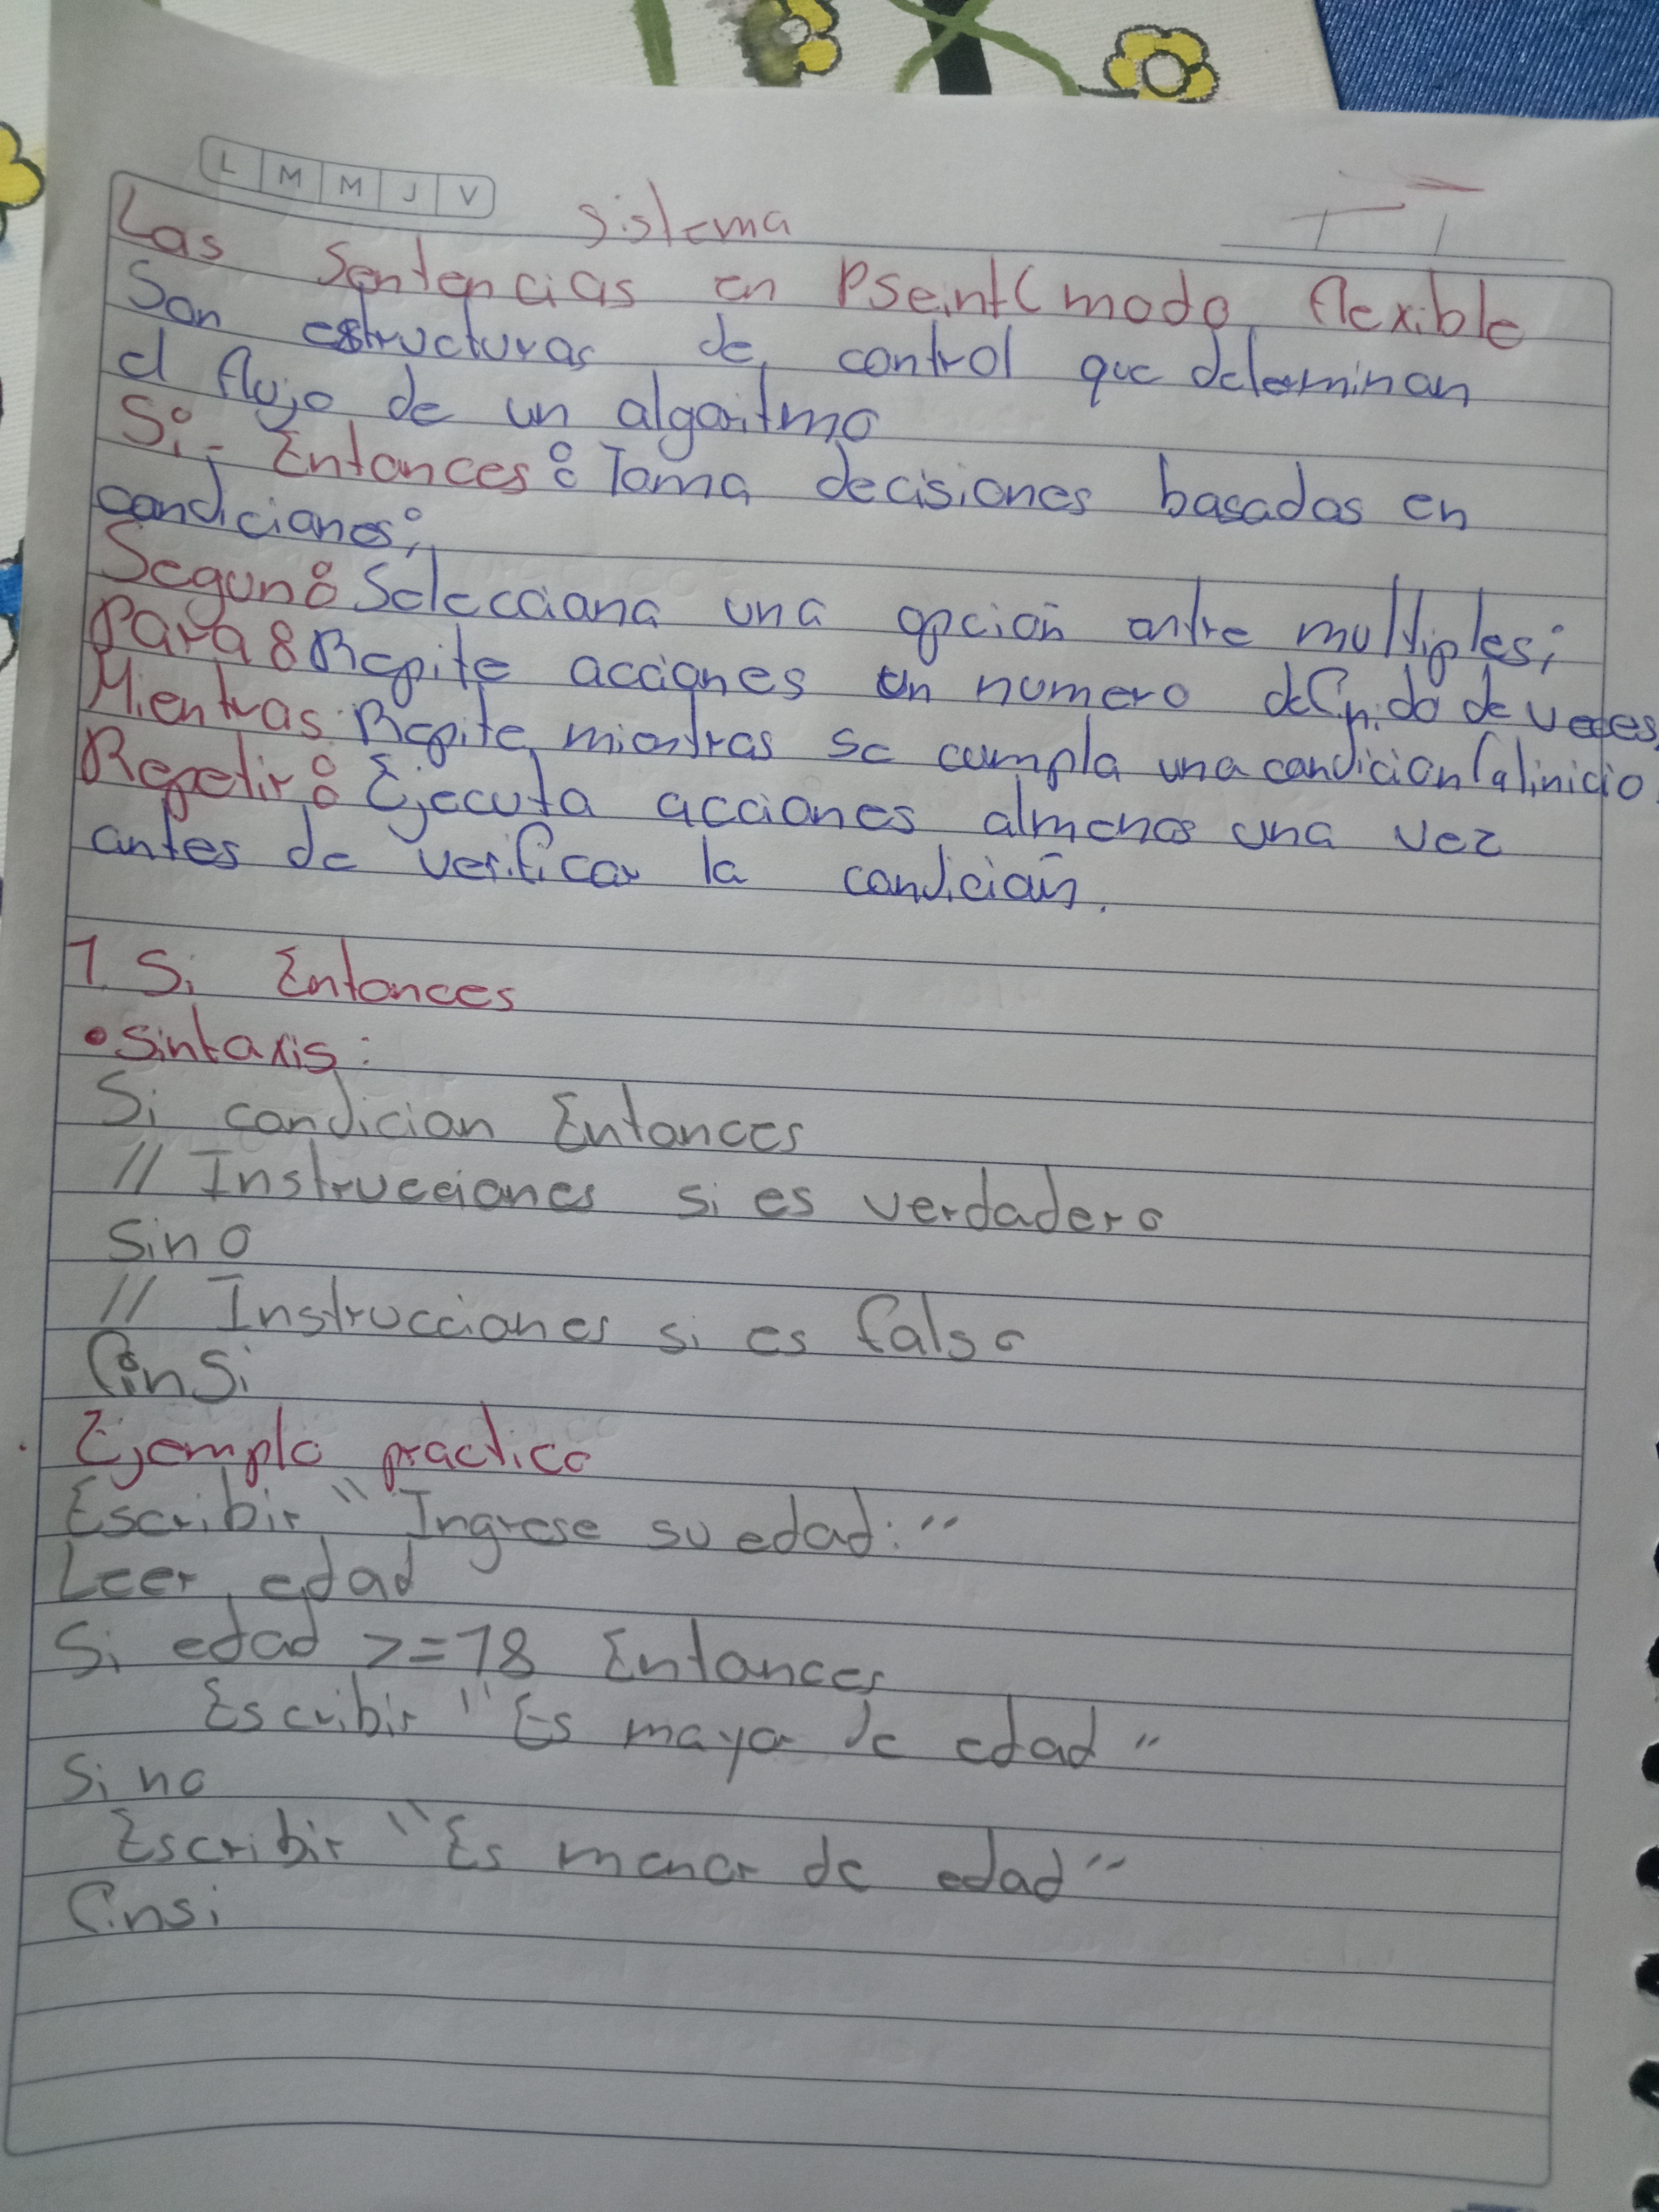 L M M J V
sistema
Las Sentencias en PSeint (modo flexible
Son estructuras de control que determinan
el flujo de un algoritmo
Si - Entonces: Toma decisiones basadas en
condiciones;
Segun: Selecciona una opción entre multiples;
Para: Repite acciones un numero definido de veces
Mientras: Repite mientras se cumpla una condicion (al inicio
Repetir: Ejecuta acciones almenos una vez
antes de verificar la condición.
1. Si Entonces
• sintaxis:
Si condicion Entonces
// Instrucciones si es verdadero
sino
// Instrucciones si es falso
finSi
Ejemplo practico
Escribir "Ingrese su edad:"
Leer edad
Si edad >=18 Entonces
Escribir "Es mayor de edad"
Sino
Escribir "Es menor de edad"
finsi